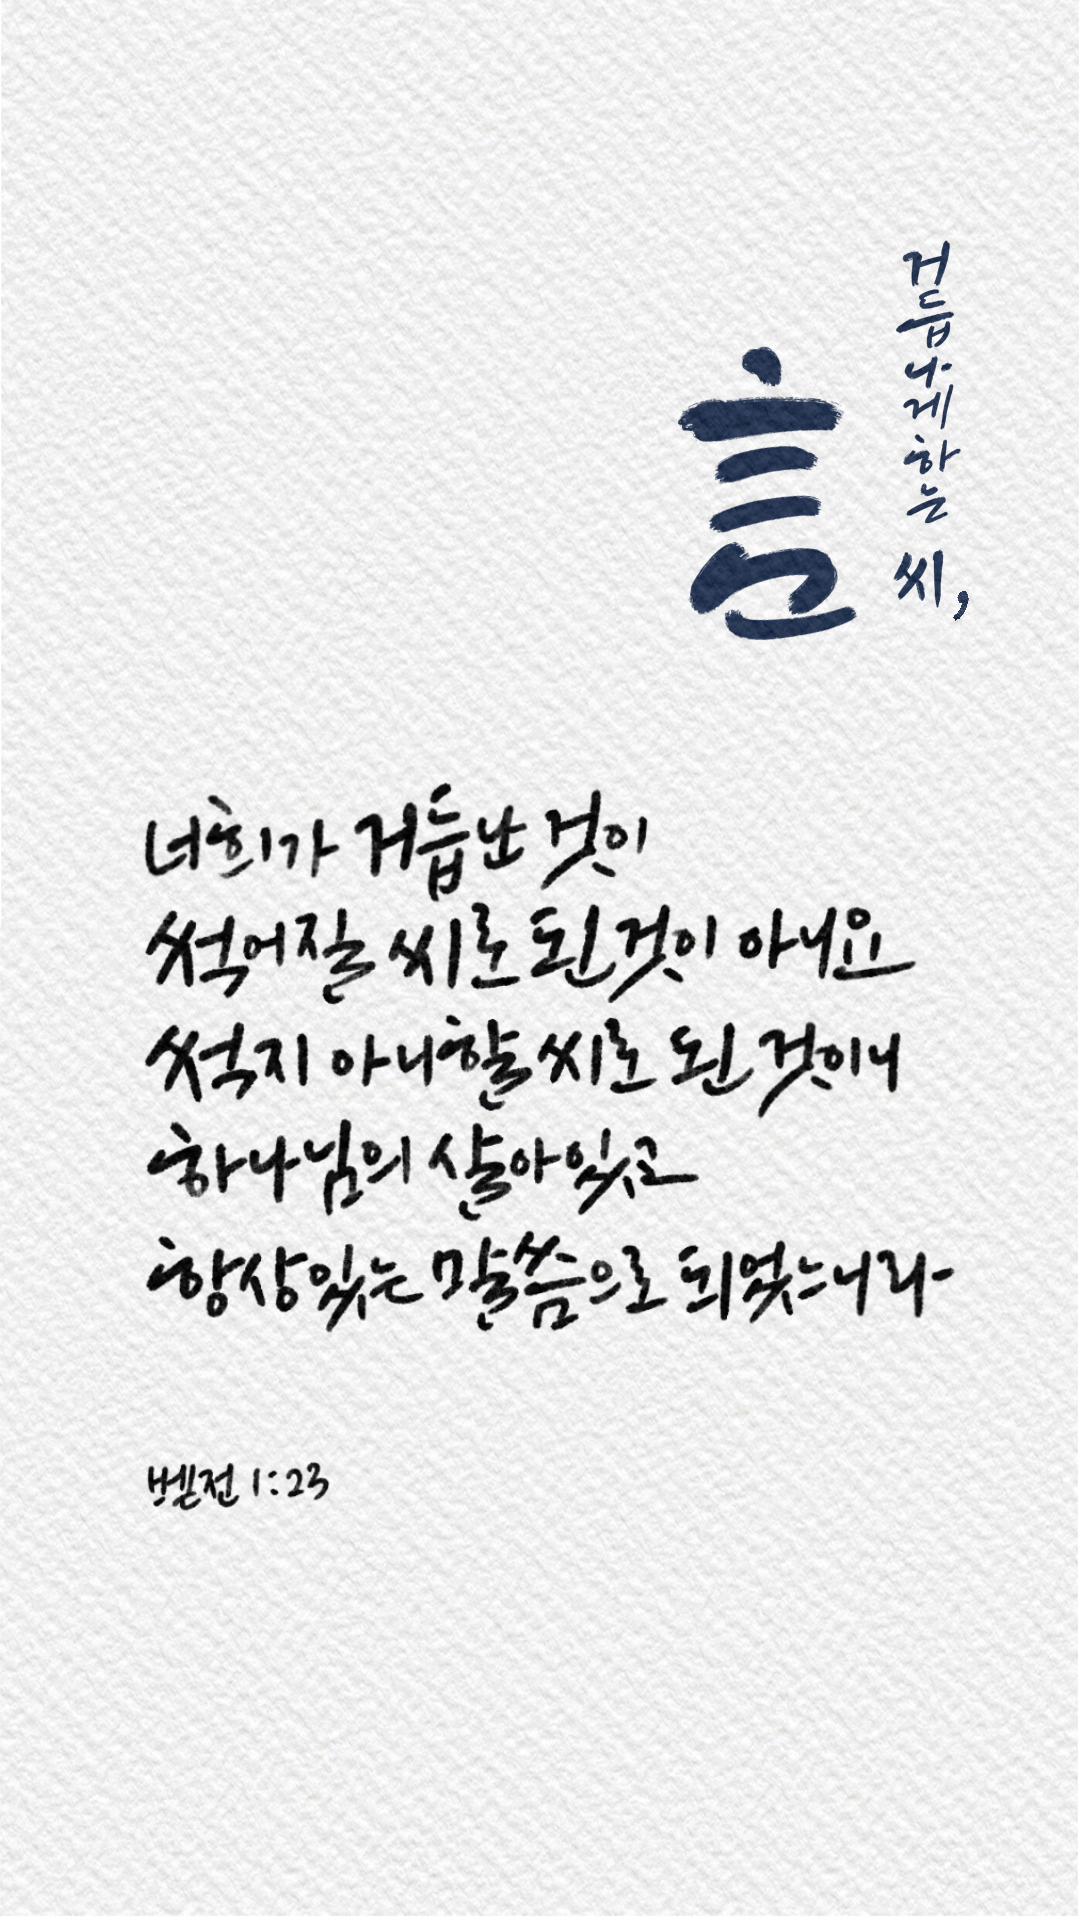 거듭나게하는 씨,
言
너희가 거듭난 것이
썩어질 씨로 된것이 아니요
썩지 아니할 씨로 된 것이니
하나님의 살아있고
항상있는 말씀으로 되었느니라
벧전 1:23